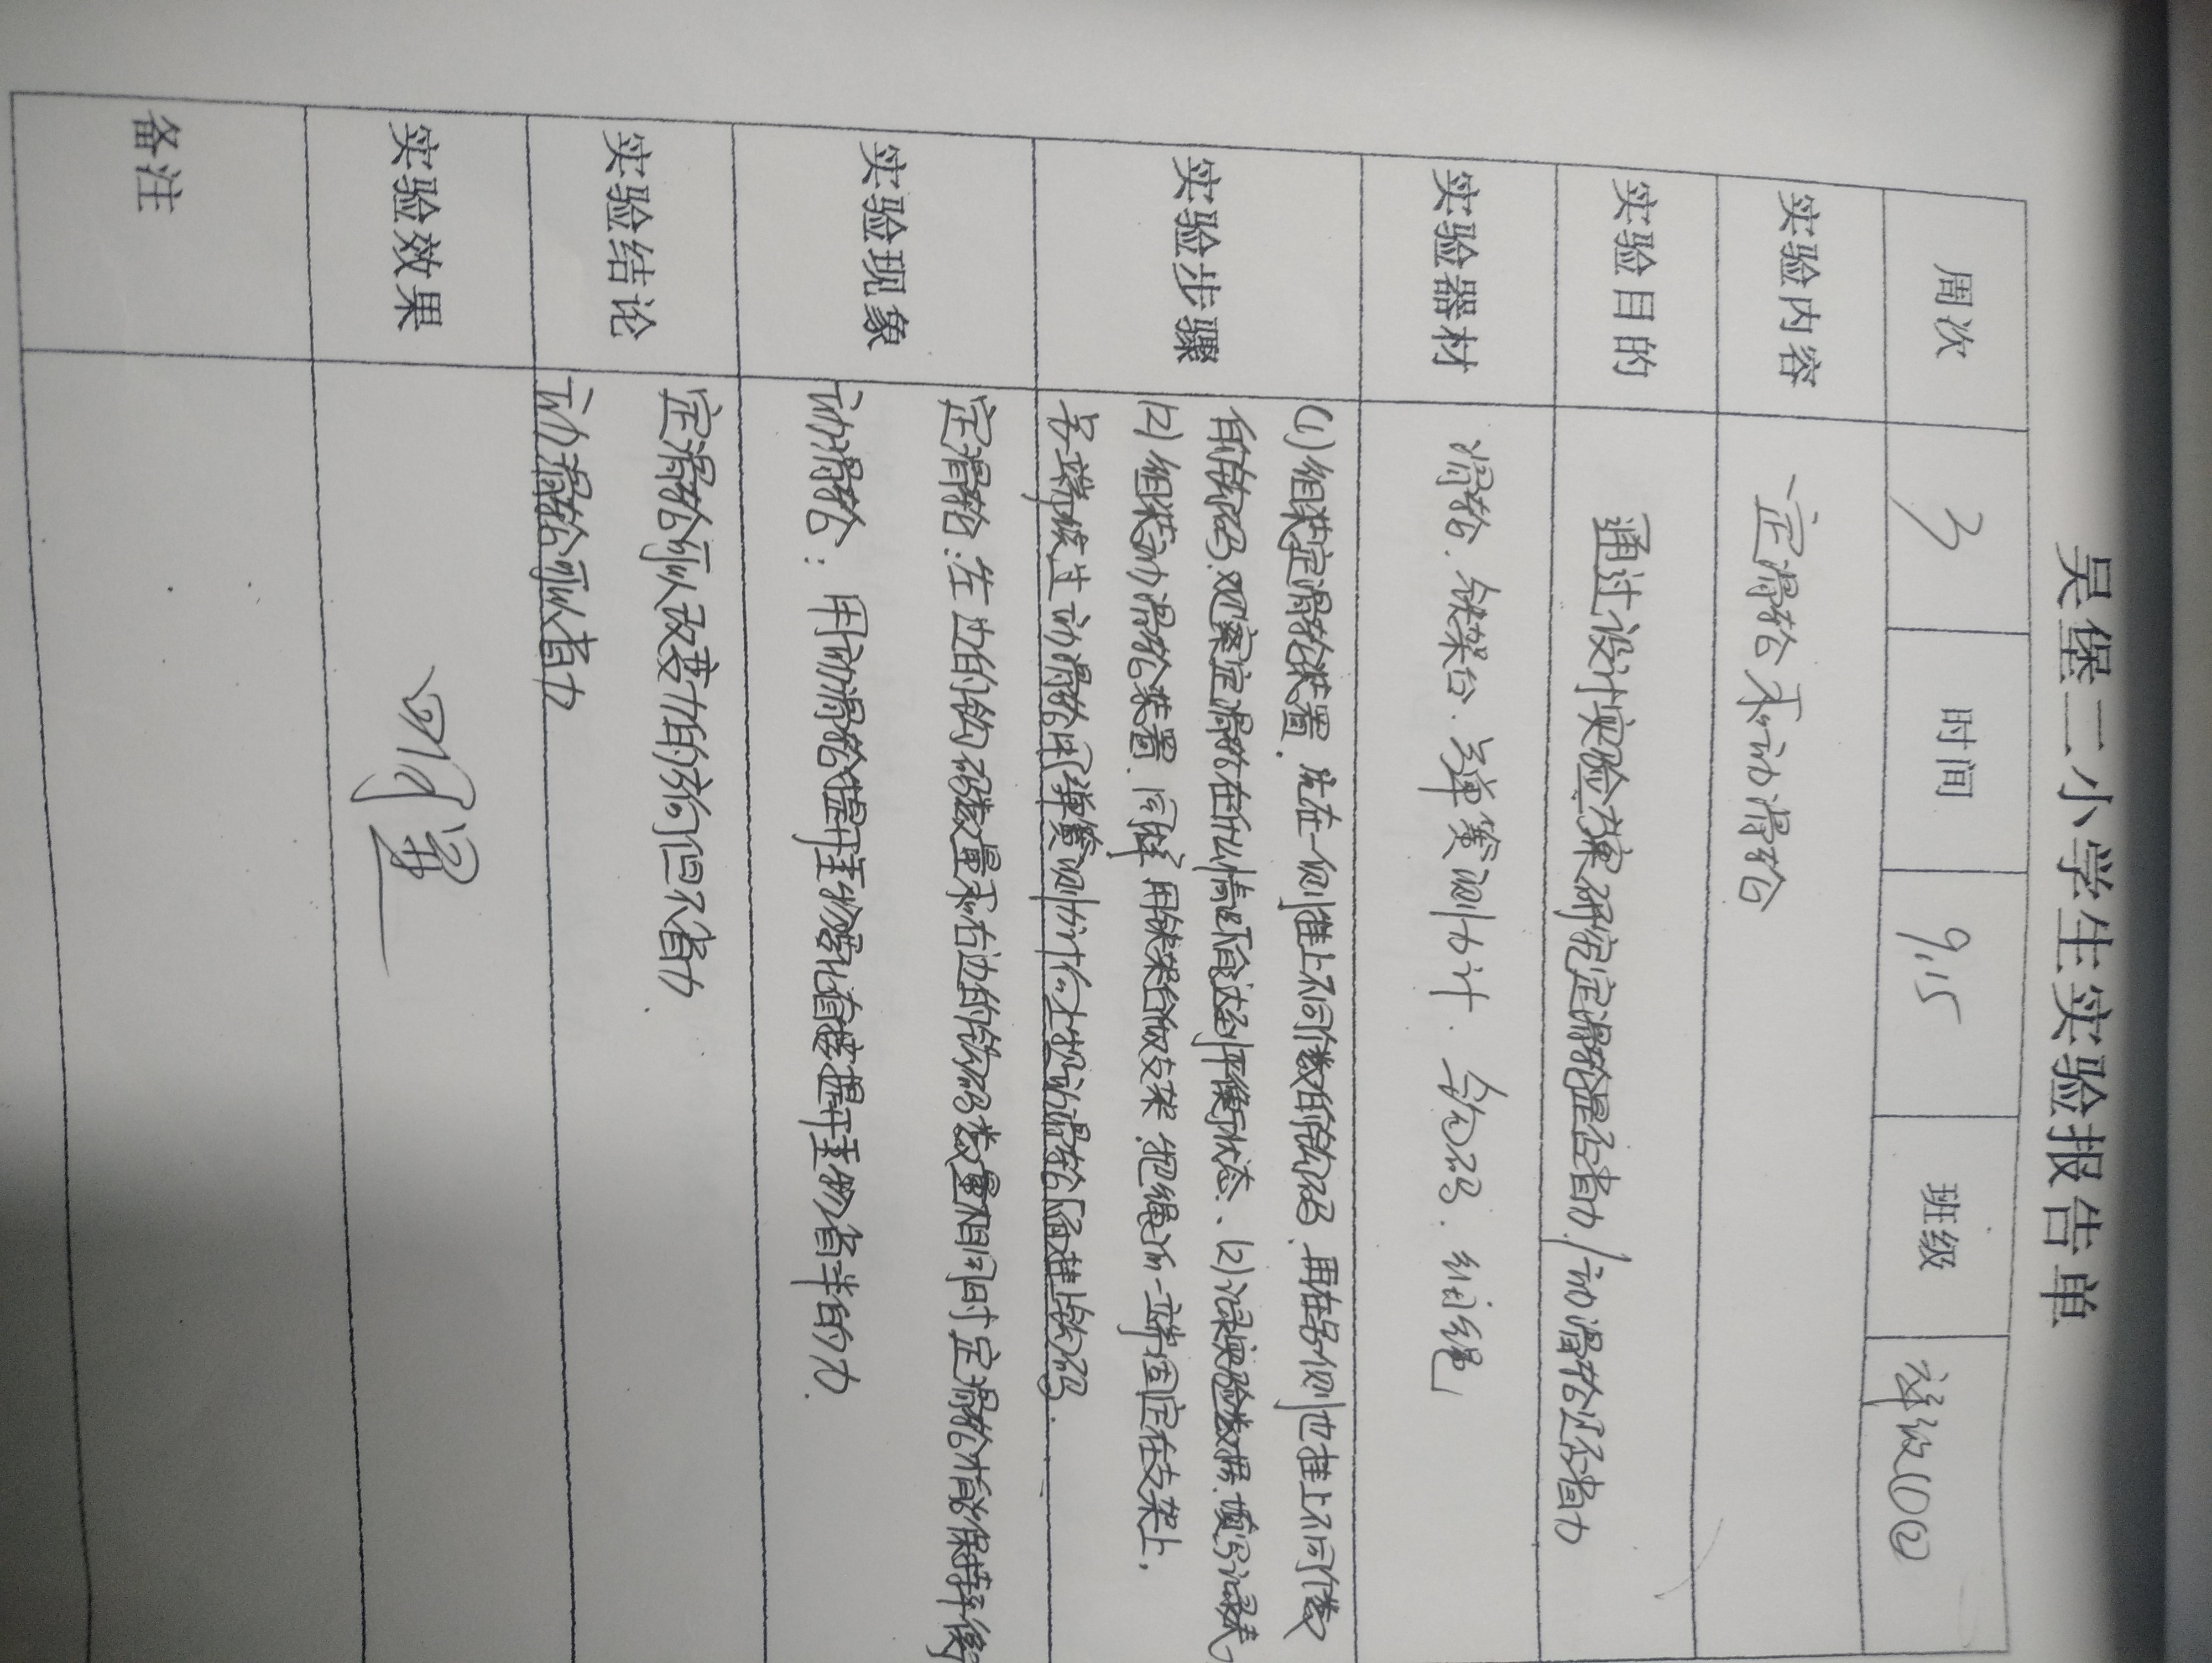 吴堡二小学生实验报告单
周次 3 时间 9.15 班级
实验内容 定滑轮和动滑轮
实验目的 通过设计实验方案研究定滑轮是否省力,动滑轮是否省力
实验器材 滑轮、铁架台、弹簧测力计、钩码、细绳
实验步骤
(1)组装定滑轮装置,先在一侧挂上不同个数的钩码,再在另侧也挂上不同个数
的钩码,观察定滑轮在什么情况下会达到平衡状态、(2)记录实验数据,填写记录表
(2)组装动滑轮装置,同样用铁架台做支架,把绳的一端固定在支架上,
另端绕过动滑轮用弹簧测力计勾住动滑轮下面挂上钩码.
实验现象
定滑轮:左边的钩码数量和右边的钩码数量相同时定滑轮才能保持平衡
动滑轮:用动滑轮提升重物比直接提升重物省半的力.
实验结论
定滑轮可以改变力的方向但不省力.
动滑轮可以省力
实验效果 明显
备注